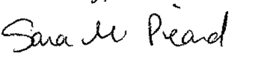 Sara M Picard